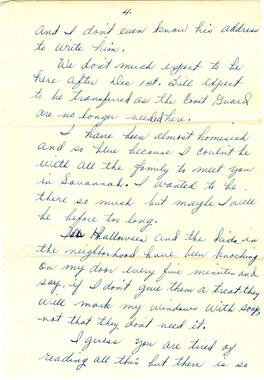 4.
And I don't even know his address
to write him.
We don't much expect to be
here after Dec 1st. Bill expect
to be transfered as the Coast Guard
are no longer needed here.
I have been almost homesick
and so blue because I couldn't be
with all the family to meet you
in Savannah. I wanted to be
there so much but maybe I will
be before too long.
Halloween and the kids in
the neighborhood have been knocking
on my door every five minutes and
say, if I don't give them a treat they
will mark my windows with soap,
not that they don't need it.
I guess you are tired of
reading all this but there is so